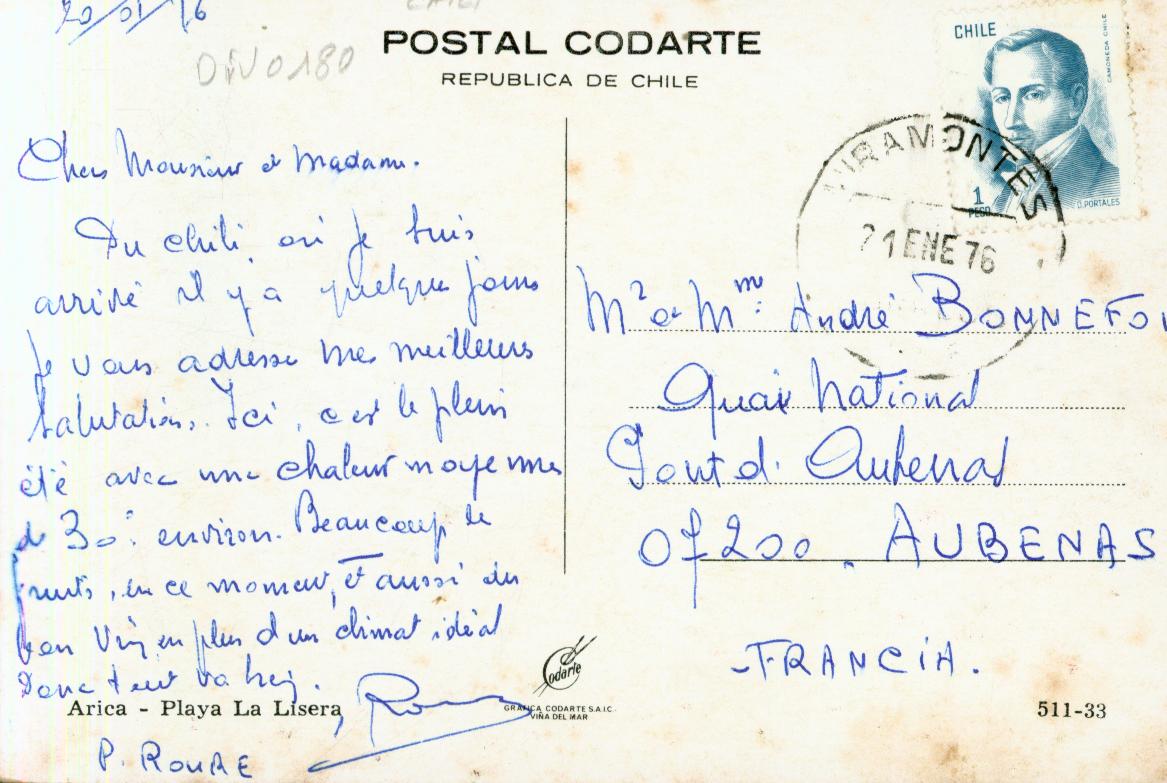 20/01/76
DIV0180
POSTAL CODARTE
REPUBLICA DE CHILE
CHILE
CASA MONEDA CHILE
1
PESO
D. PORTALES
MIRAMONTES
21 ENE 76
Chers Monsieur et Madame.
Du chili, où je suis
arrivé il y a quelques jours
je vous adresse mes meilleures
salutations. Ici, c'est le plein
été avec une chaleur moyenne
de 30° environ. Beaucoup de
fruits, en ce moment, et aussi du
bon vin, en plus d'un climat idéal
Donc tout va bien.
P. ROURE
Mr et Mme André BONNEFOY
Quai National
Pont d'Aubenas
07200 AUBENAS
-FRANCIA.
Arica - Playa La Lisera
Codarte
GRAFICA CODARTE S.A.I.C.
VIÑA DEL MAR
511-33